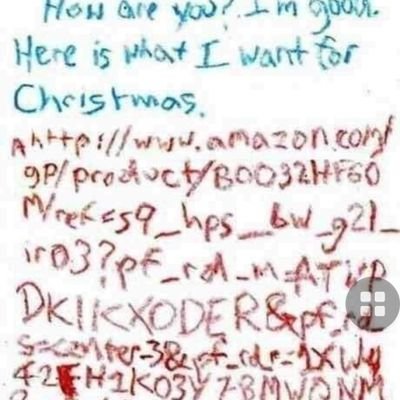 How are you? I'm good.
Here is what I want for
Christmas.
Ahttp://www.amazon.com/
gp/product/B0032HF60
M/ref=s9_hps_bw_g21_
ir03?pf_rd_m=ATVP
DKIKX0DER&pf_rd
s=center-3&pf_rd_r=1XWy
42FH1K03Y7BMWQNM